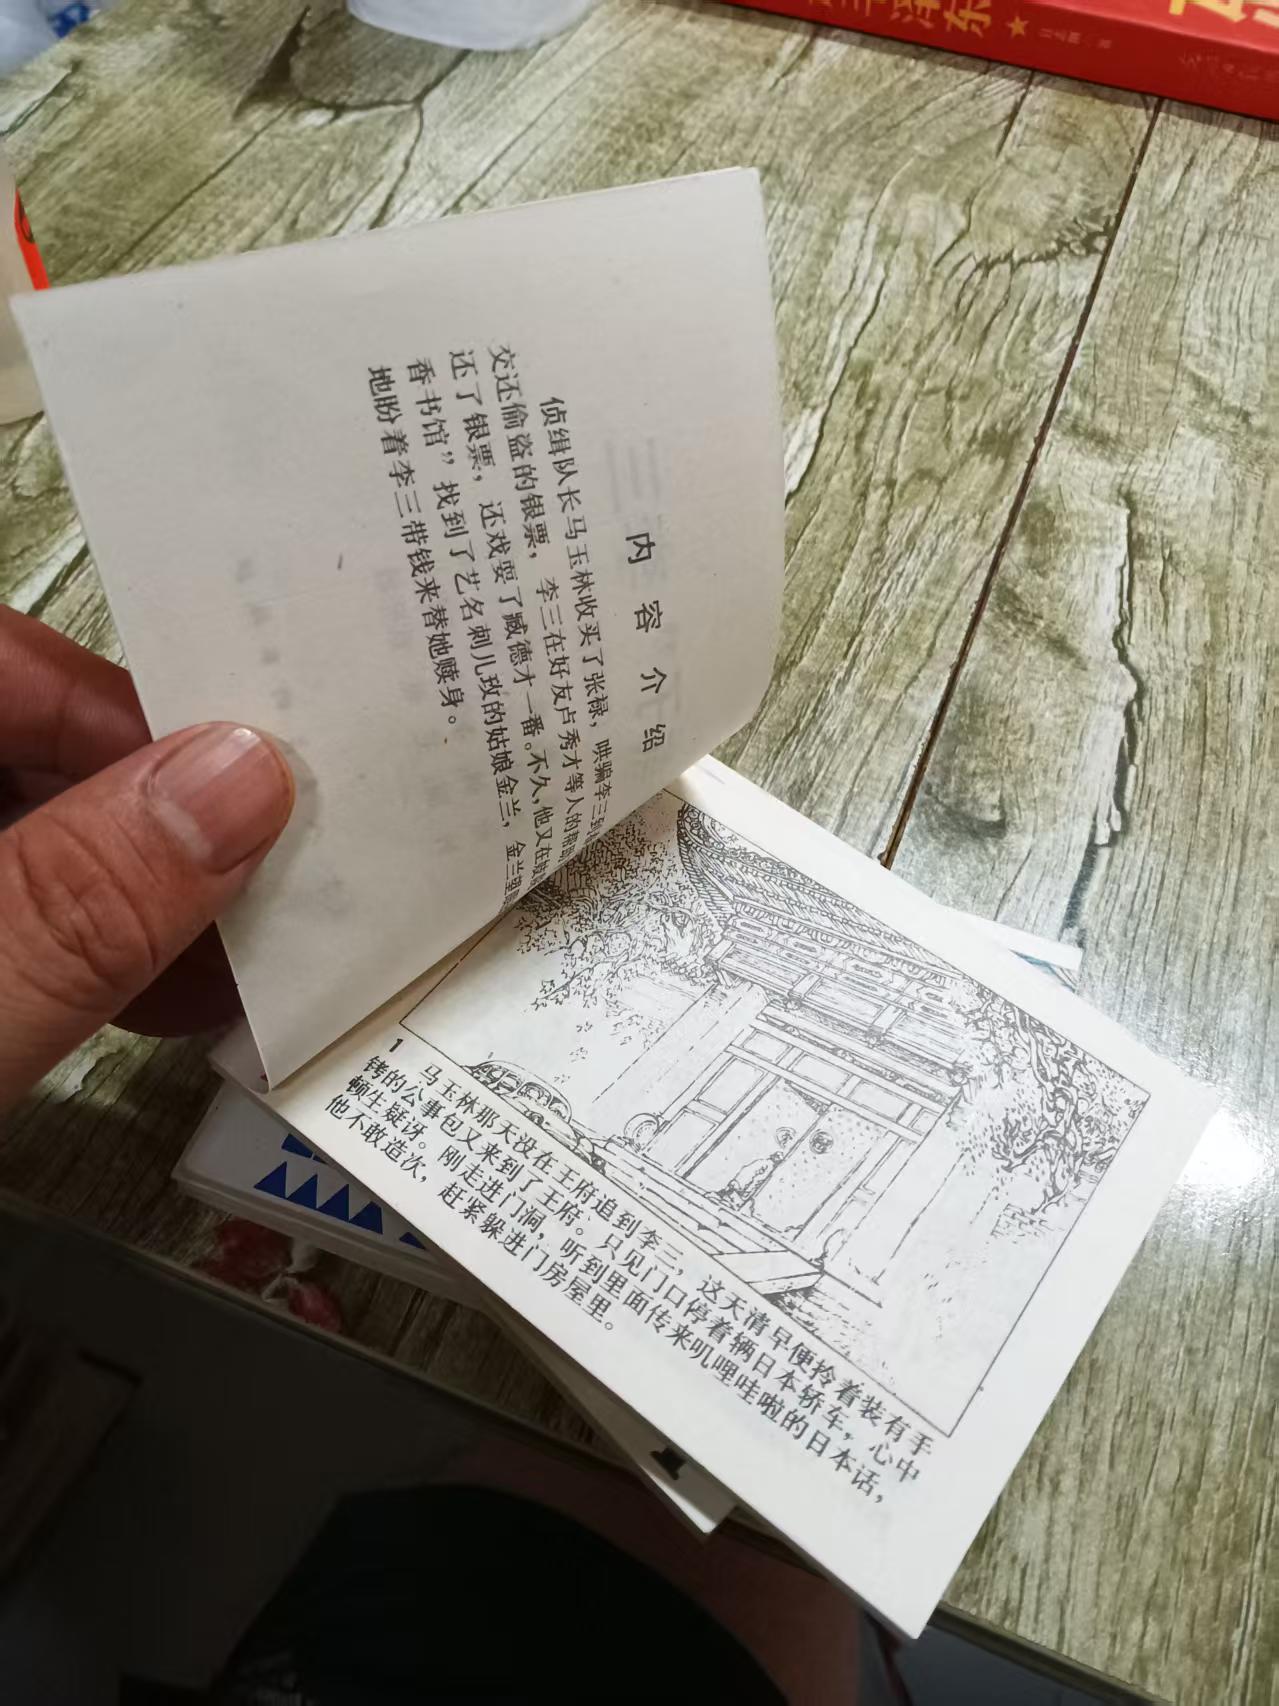 泽东
内容介绍
侦缉队长马玉林收买了张禄，哄骗李三到
交还偷盗的银票，李三在好友卢秀才等人的帮
还了银票，还戏耍了臧德才一番。不久，他又在
香书馆”找到了艺名刺儿玫的姑娘金兰，金兰
地盼着李三带钱来替她赎身。
1 马玉林那天没在王府追到李三，这天清早便拎着装有手
铐的公事包又来到了王府。只见门口停着辆日本轿车，心中
顿生疑讶。刚走进门洞，听到里面传来叽哩哇啦的日本话，
他不敢造次，赶紧躲进门房屋里。